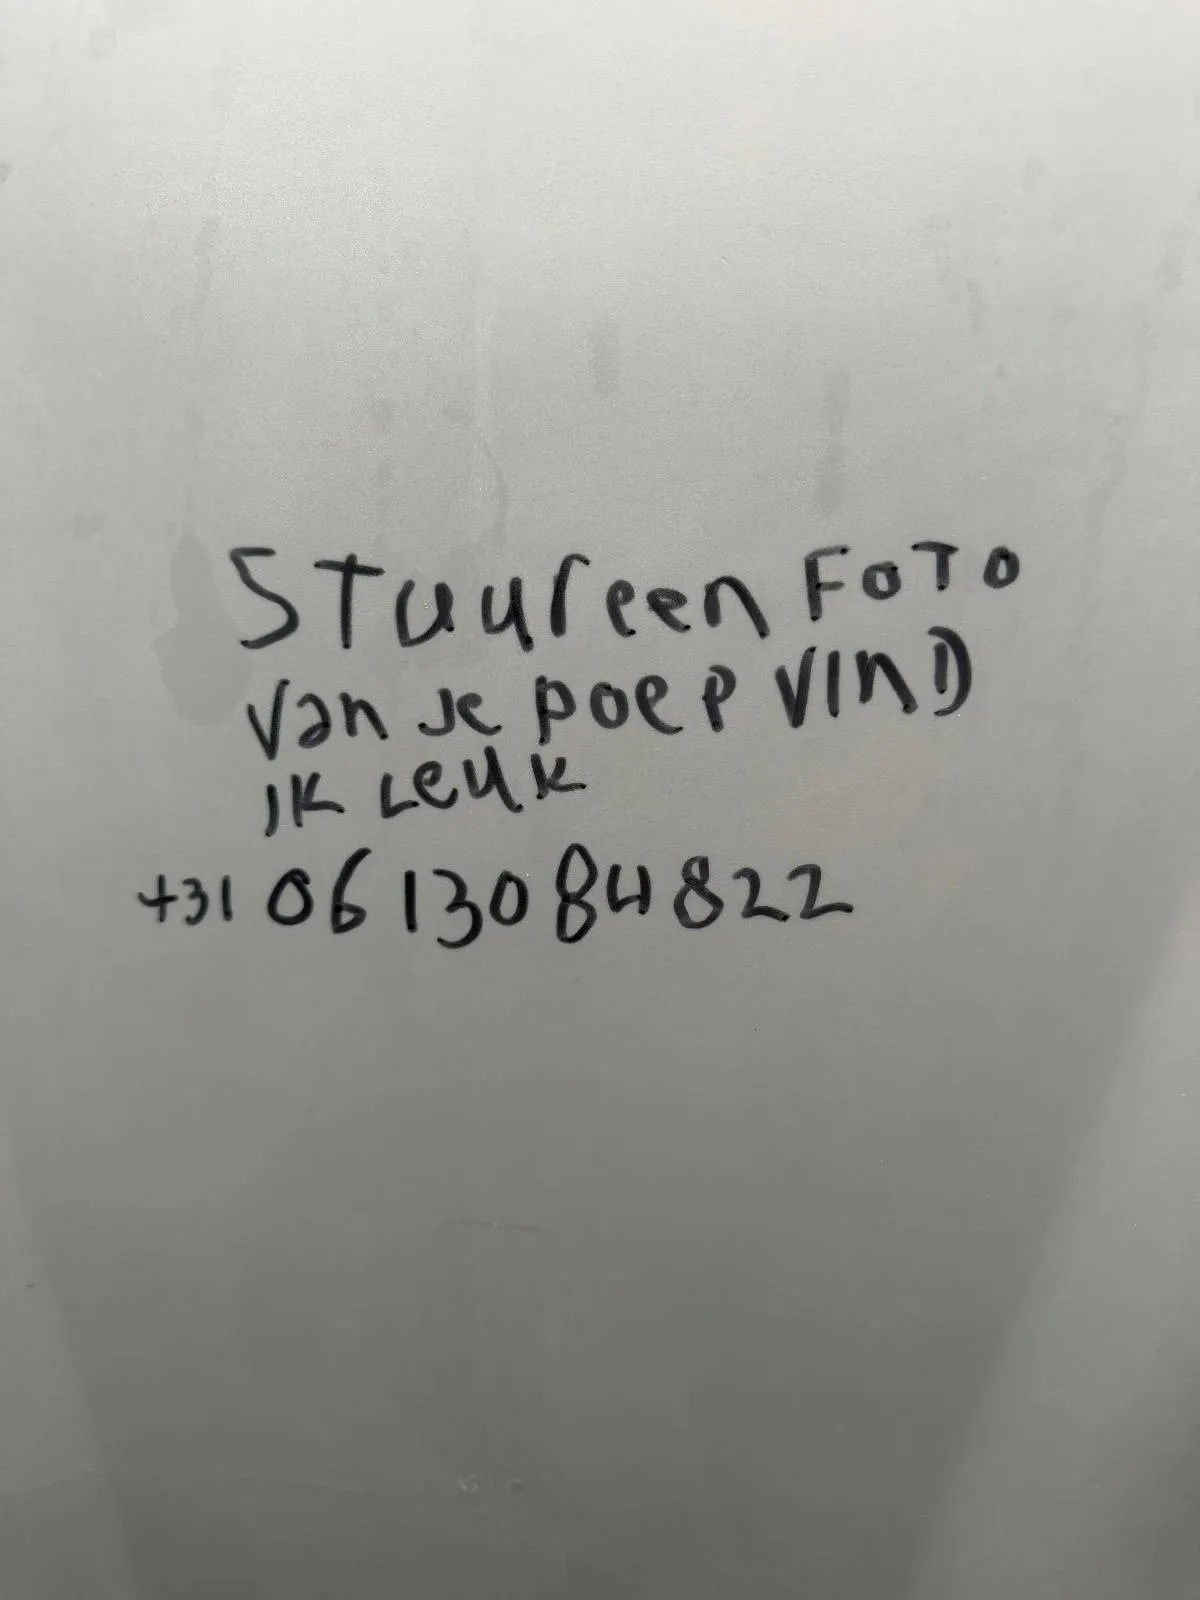 Stuur een FOTO
van je poep VIND
ik Leuk
+31 0613084822